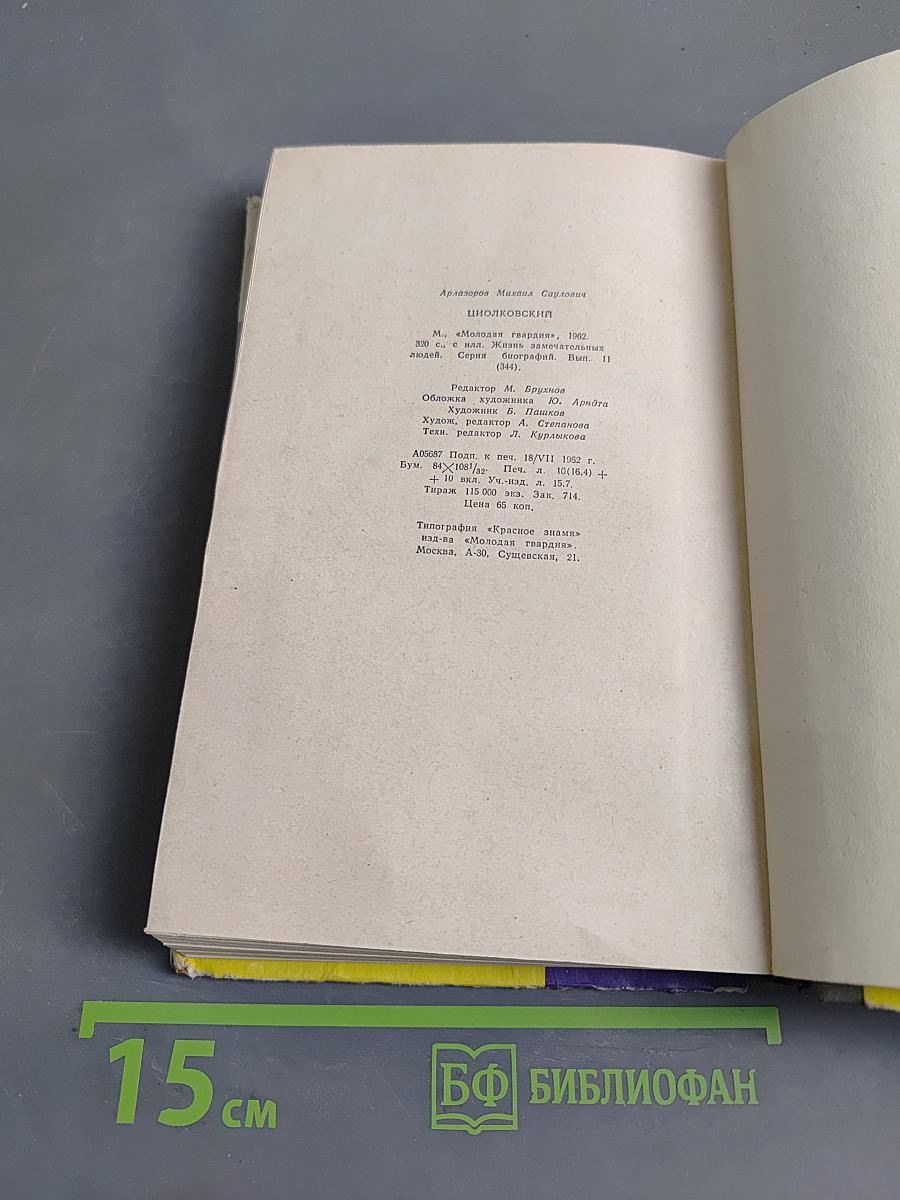 Арлазоров Михаил Саулович
ЦИОЛКОВСКИЙ
М., «Молодая гвардия», 1962.
320 с., с илл. Жизнь замечательных
людей. Серия биографий. Вып. 11
(344).
Редактор М. Брухнов
Обложка художника Ю. Арндта
Художник Б. Пашков
Худож. редактор А. Степанова
Техн. редактор Л. Курлыкова
А05687 Подп. к печ. 18/VII 1962 г.
Бум. 84×108 1/32. Печ. л. 10(16,4) +
+ 10 вкл. Уч.-изд. л. 15,7.
Тираж 115 000 экз. Зак. 714.
Цена 65 коп.
Типография «Красное знамя»
изд-ва «Молодая гвардия».
Москва, А-30, Сущевская, 21.
15 см
БФ БИБЛИОФАН